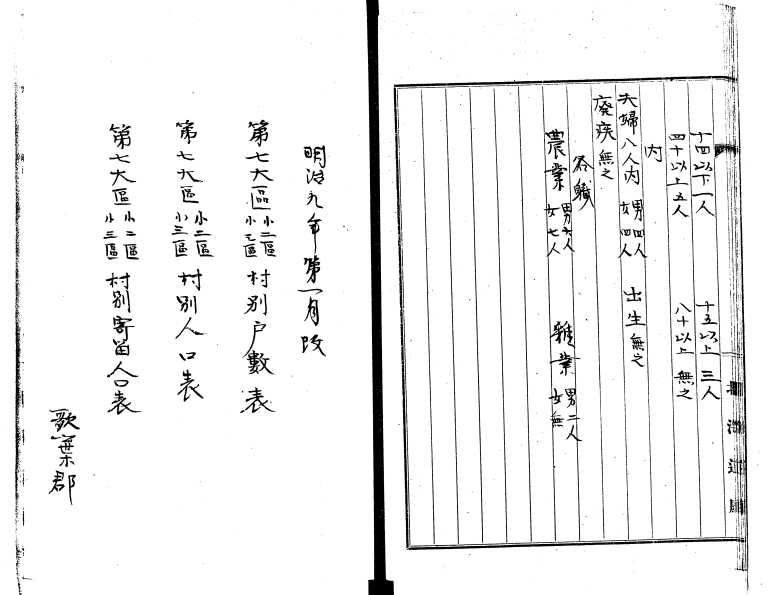 十四以下一人　十五以上三人
四十以上五人　八十以上無之
内
夫婦八人内 男四人 女四人　出生無之
廢疾無之
各職
農業 男六人 女七人　雜業 男二人 女無
明治九年第一月改
第七大區 小二區 小三區 村別戸數表
第七大區 小二區 小三區 村別人口表
第七大區 小二區 小三區 村別寄留人口表
歌棄郡